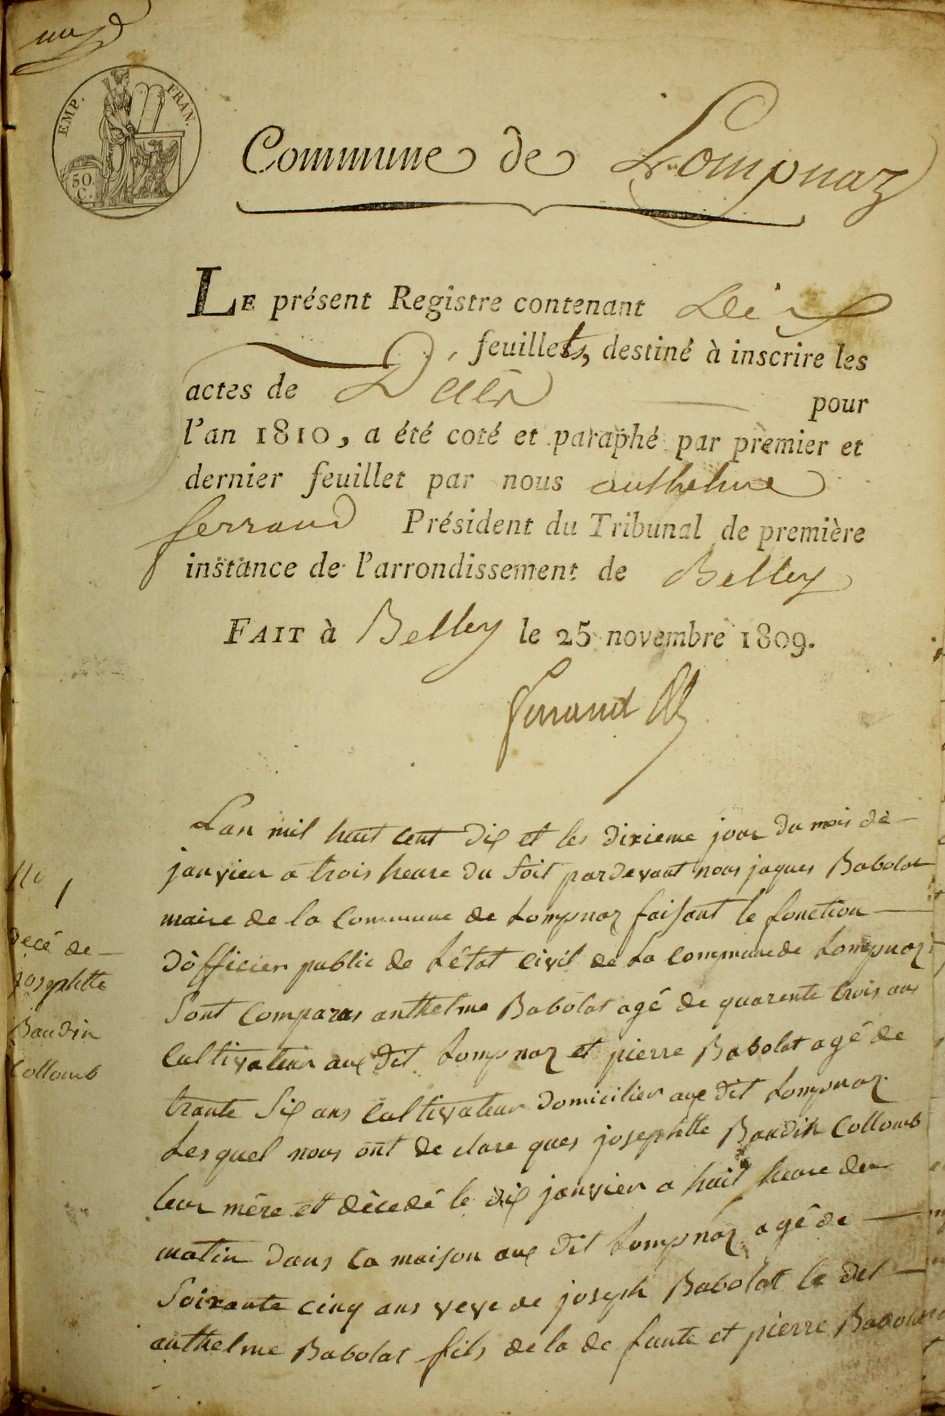 EMP. FRAN.
50. C.
Commune de Lompnaz
LE présent Registre contenant Dix
feuillets, destiné à inscrire les
actes de Décès pour
l'an 1810, a été coté et paraphé par premier et
dernier feuillet par nous anthelme
ferrand Président du Tribunal de première
instance de l'arrondissement de Belley
FAIT à Belley le 25 novembre 1809.
ferrand
Lan mil huit cent dix et les dixieme jour du mois de
janvier a trois heure du soit pardevant nous jaques Babolat
maire de la Commune de Lompnaz faisant le fonction
dofficier public de Létat civil de La Commune de Lompnaz
Sont Comparus anthelme Babolat agé de quarente trois ans
Cultivateur aux dit Lompnaz et pierre Babolat agé de
trante Six ans Cultivateur domicilier aux dit Lompnaz
Lesquel nous ont de clare ques josephtte Baudin Collomb
leur mére et décedé le dix janvier a huit heure du
matin dans la maison aux dit Lompnaz agé de
Soixante cinq ans veve de joseph Babolat le dit
anthelme Babolat fils de la de funte et pierre Babolat
No 1
Décé de
josephtte
Baudin
Collomb